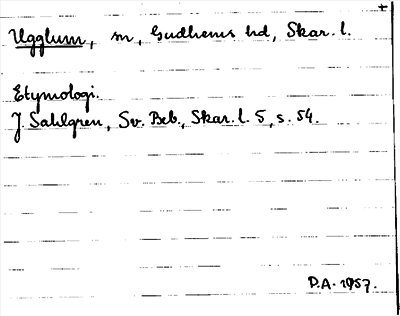 Ugglum, sn, Gudhems hd, Skar. l.
Etymologi.
J. Sahlgren, Sv. Beb., Skar. l. 5, s. 54.
D.A. 1957.